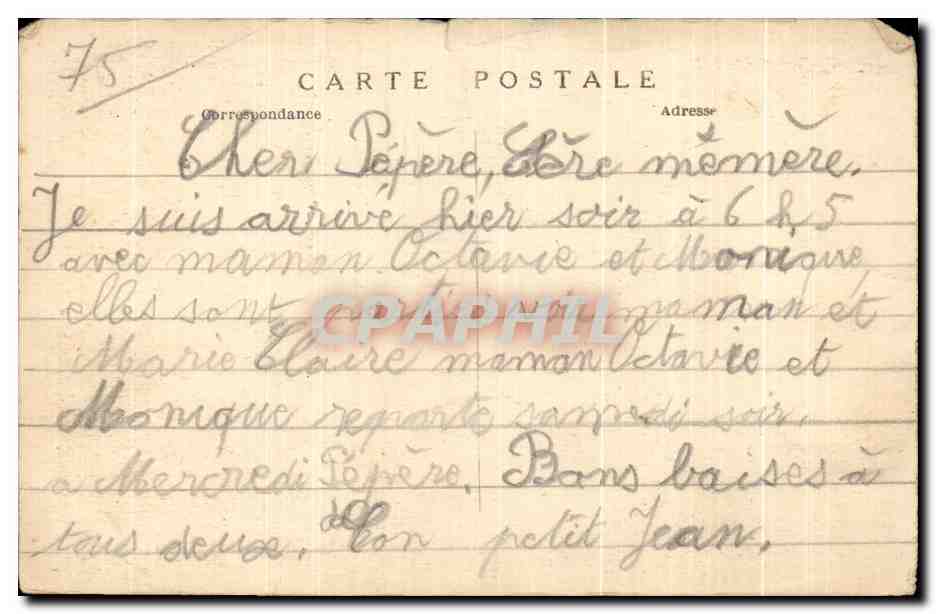 75
CARTE POSTALE
Correspondance
Adresse
Cher Pépère, Chère mémère.
Je suis arrivé hier soir à 6 h 5
avec maman Octavie et Monique,
elles sont partie voir maman et
Marie Claire maman Octavie et
Monique reparte samedi soir.
a Mercredi Pépère. Bons baises à
tous deux. Ton petit Jean.
CPAPHIL